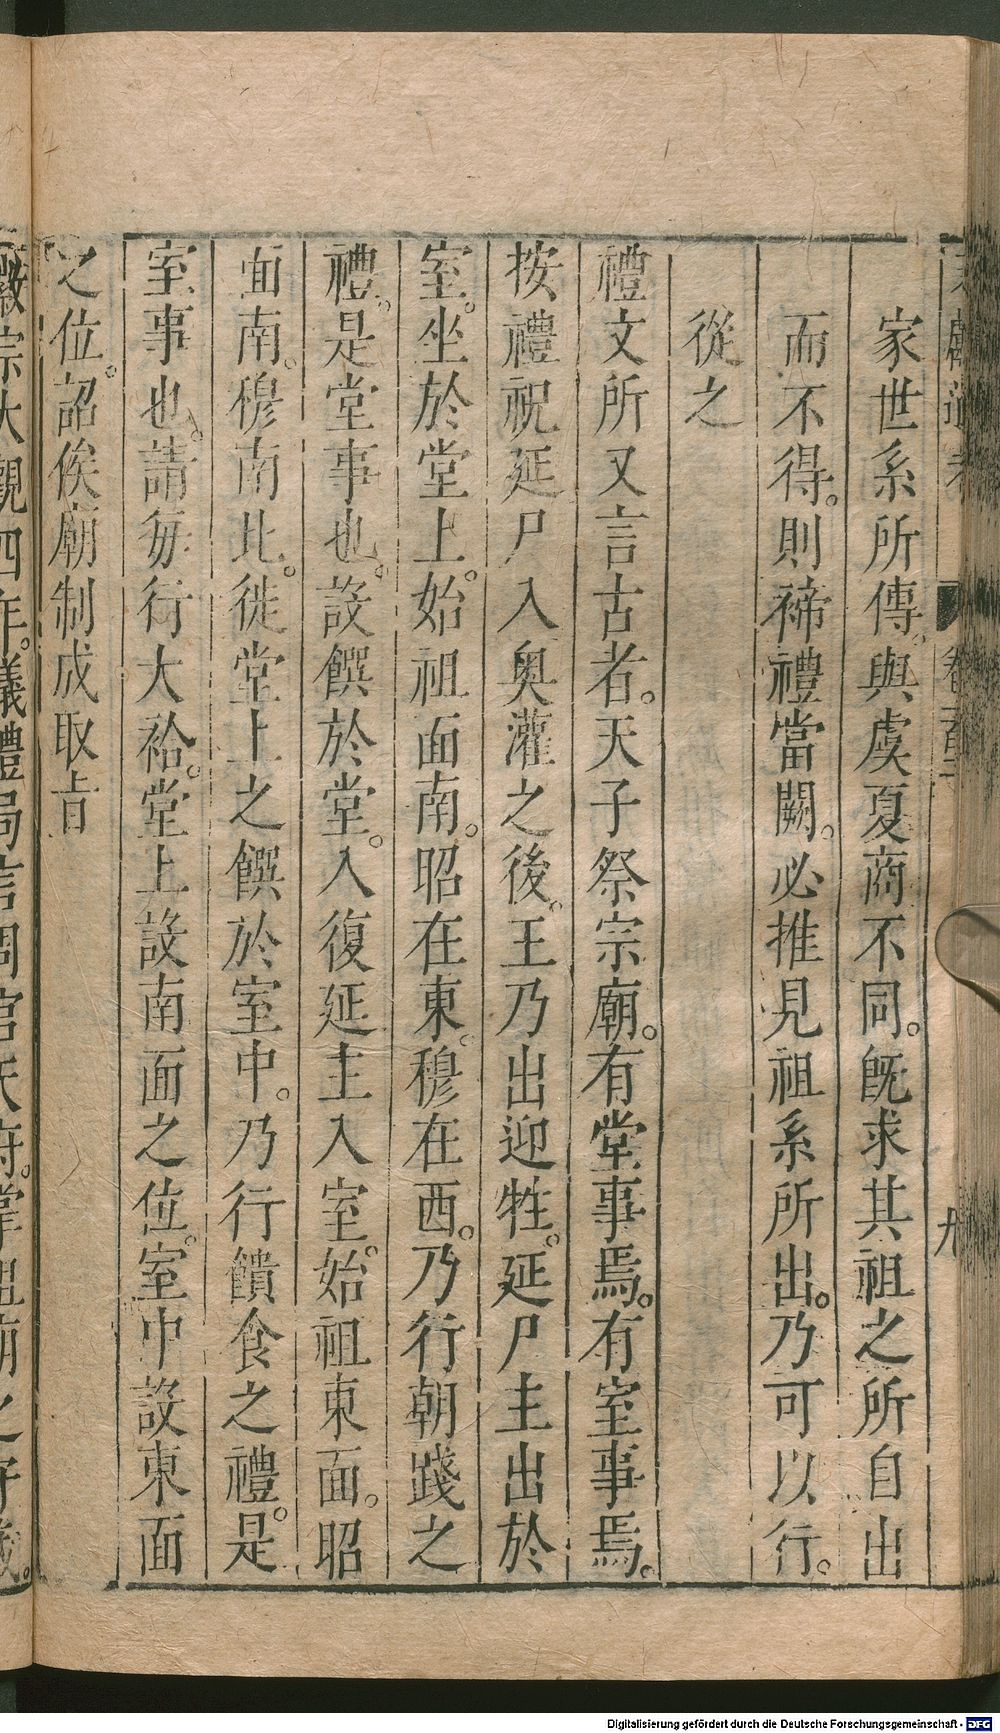 家世系所傳。與虞夏商不同。旣求其祖之所自出
而不得。則禘禮當闕。必推見祖系所出。乃可以行。
從之
禮文所又言古者。天子祭宗廟。有堂事焉。有室事焉。
按禮祝延尸入奥灌之後。王乃出迎牲。延尸主出於
室。坐於堂上。始祖面南。昭在東。穆在西。乃行朝踐之
禮。是堂事也。設饌於堂。入復延主入室。始祖東面。昭
面南。穆南北。徙堂上之饌於室中。乃行饋食之禮。是
室事也。請每行大祫。堂上設南面之位。室中設東面
之位。詔俟廟制成取旨
徽宗大觀四年。議禮局言周官天府。掌祖廟之守藏。
Digitalisierung gefördert durch die Deutsche Forschungsgemeinschaft - DFG